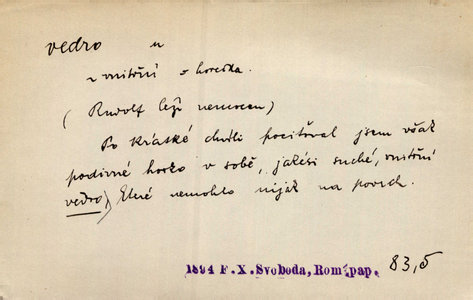 vedro n
~ vnitřní = horečka.
(Rudolf leží nemocen)
Po krátké chvíli pociťoval jsem však
podivné horko v sobě, jakési suché, vnitřní
vedro, které nemohlo nijak na povrch.
1894 F. X. Svoboda, Rom. pap. 83,5